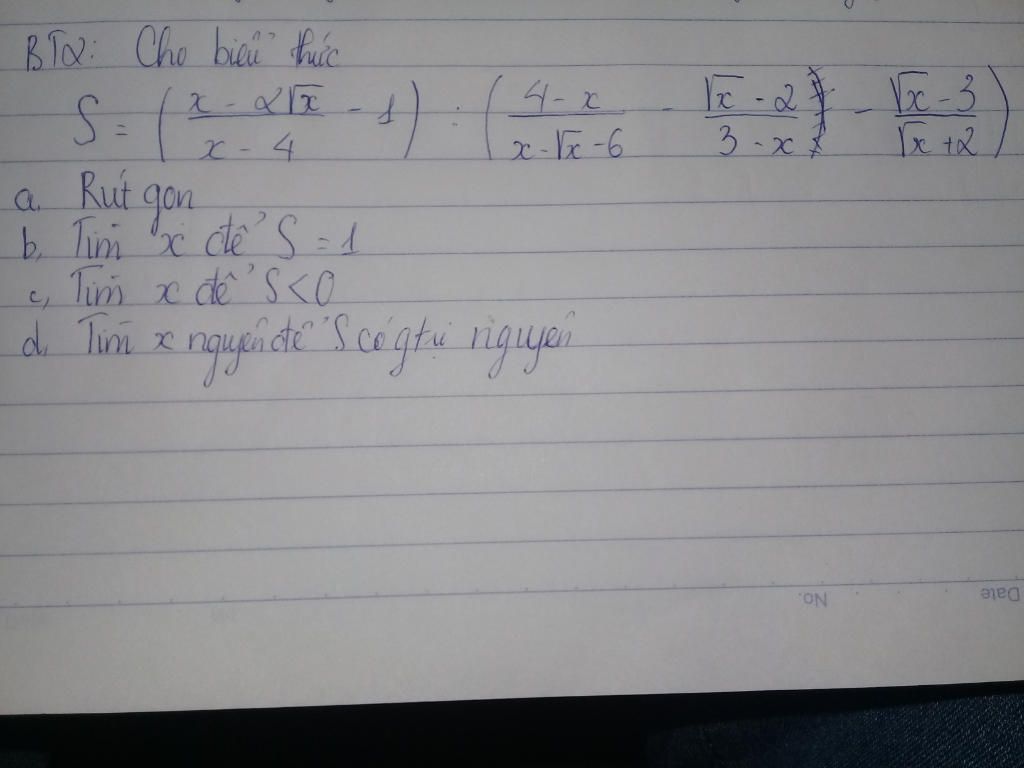 BT2: Cho biểu thức
S = ( (x - 2√x)/(x - 4) - 1 ) : ( (4 - x)/(x - √x - 6) - (√x - 2)/(3 - x) - (√x - 3)/(√x + 2) )
a. Rút gọn
b, Tìm x để S = 1
c, Tìm x để S < 0
d, Tìm x nguyên để S có gtrị nguyên
No.
Date